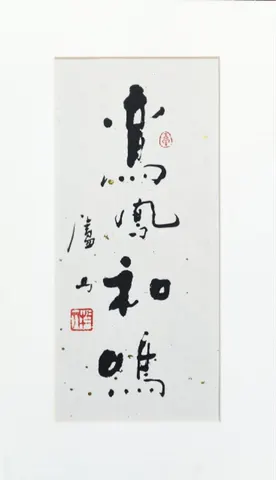 鸾鳳和鳴
廬山